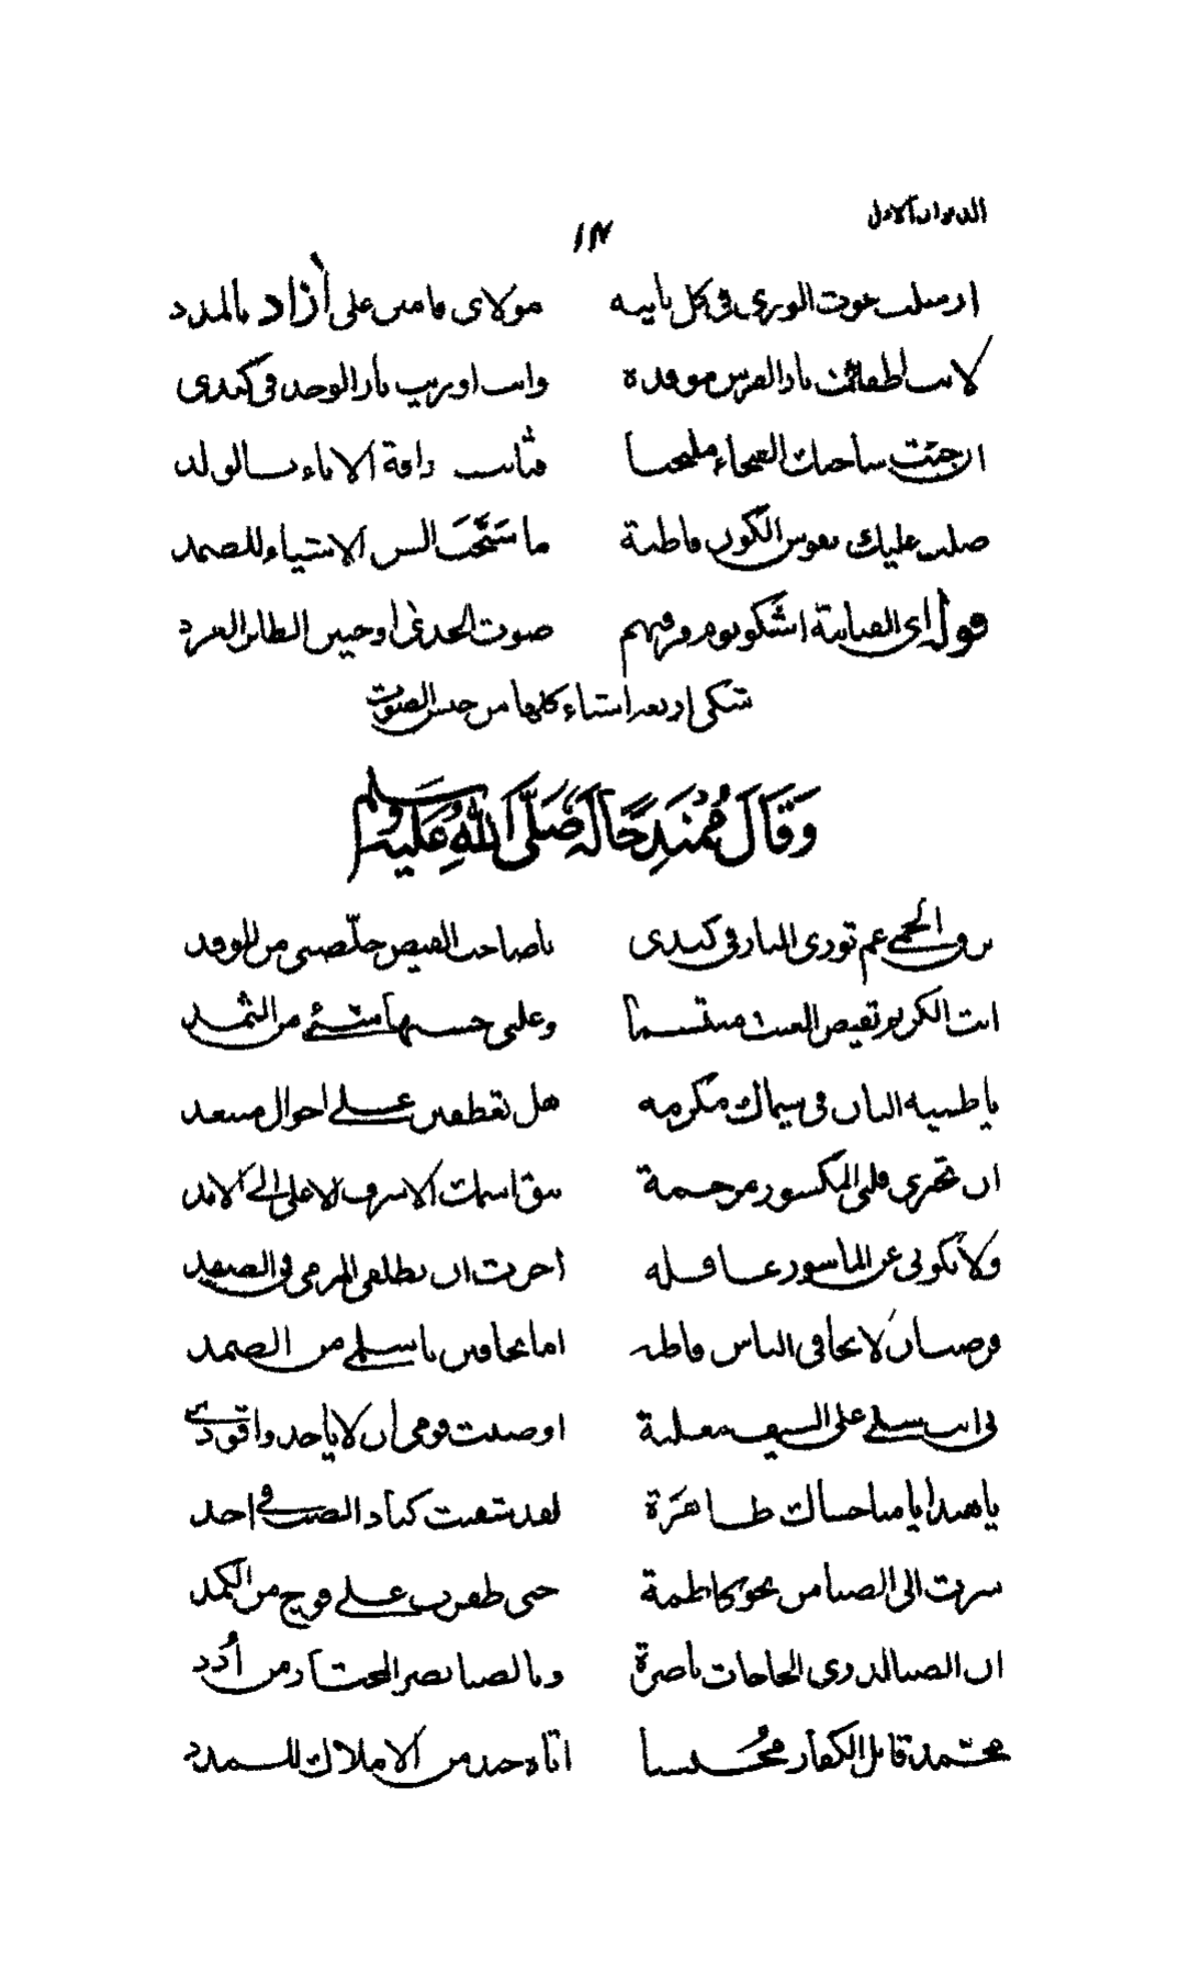 الديوان الاول
١١٧
ارسلت غوث الورى فى كل نايبه مولاى فامنن على أزاد بالمدد
لانت اطفأت نار الفرس موقدة وانت اوريت نار الوجد فى كبدى
ان جئت ساحتك الفيحاء ملتجئا فشانت رافة الاباء بالولد
صلت عليك نفوس الكون قاطبة ما سَبَّحَتْ السن الاشياء للصمد
قوله اى الصبابة اشكو يوم فرقتهم صوت الحدى او حنين الطائر الغرد
شكى اربعة اشياء كلها من جنس الصوت
وَقَالَ مُمْتَدِحًا لَهُ صَلَّى اللهِ عَلَيْهِ وَسَلم
برق الحمى عم تورى النار فى كبدى يا صاحب الفيض خلّصنى من الوقد
انت الكريم تفيض الغيث مبتسما وعلتى حسبها شئ من الثمد
يا ظبية البان فى سيماك مكرمه هل تعطفين على احوال مبتعد
ان تجبرى قلبى المكسور مرحمة يبق اسمك الاشرف الاعلى الى الابد
ولا تكونى عن الماسور غافله أحرت ان تطلقى المرمى فى الصفد
فرضت ان لا تخافى الناس قاطبه اما تخافين يا سلمى من الصمد
لى انت سلى على السيف معلنة اوصيت قومى ان لا ياخدوا قودى
يا هند ايا صباحباك طاهرَة لقد شفيت كباد الصب فى احد
سرت الى الصبا من نحو كاظمة حتى ظفرت على فوج من الكمد
ان الصبا لذوى الحاجات ناصرة وبالصبا نصر المختار من أُدَد
محمد قاتل الكفار مُحتسبا اتاه جند من الاملاك للمدد